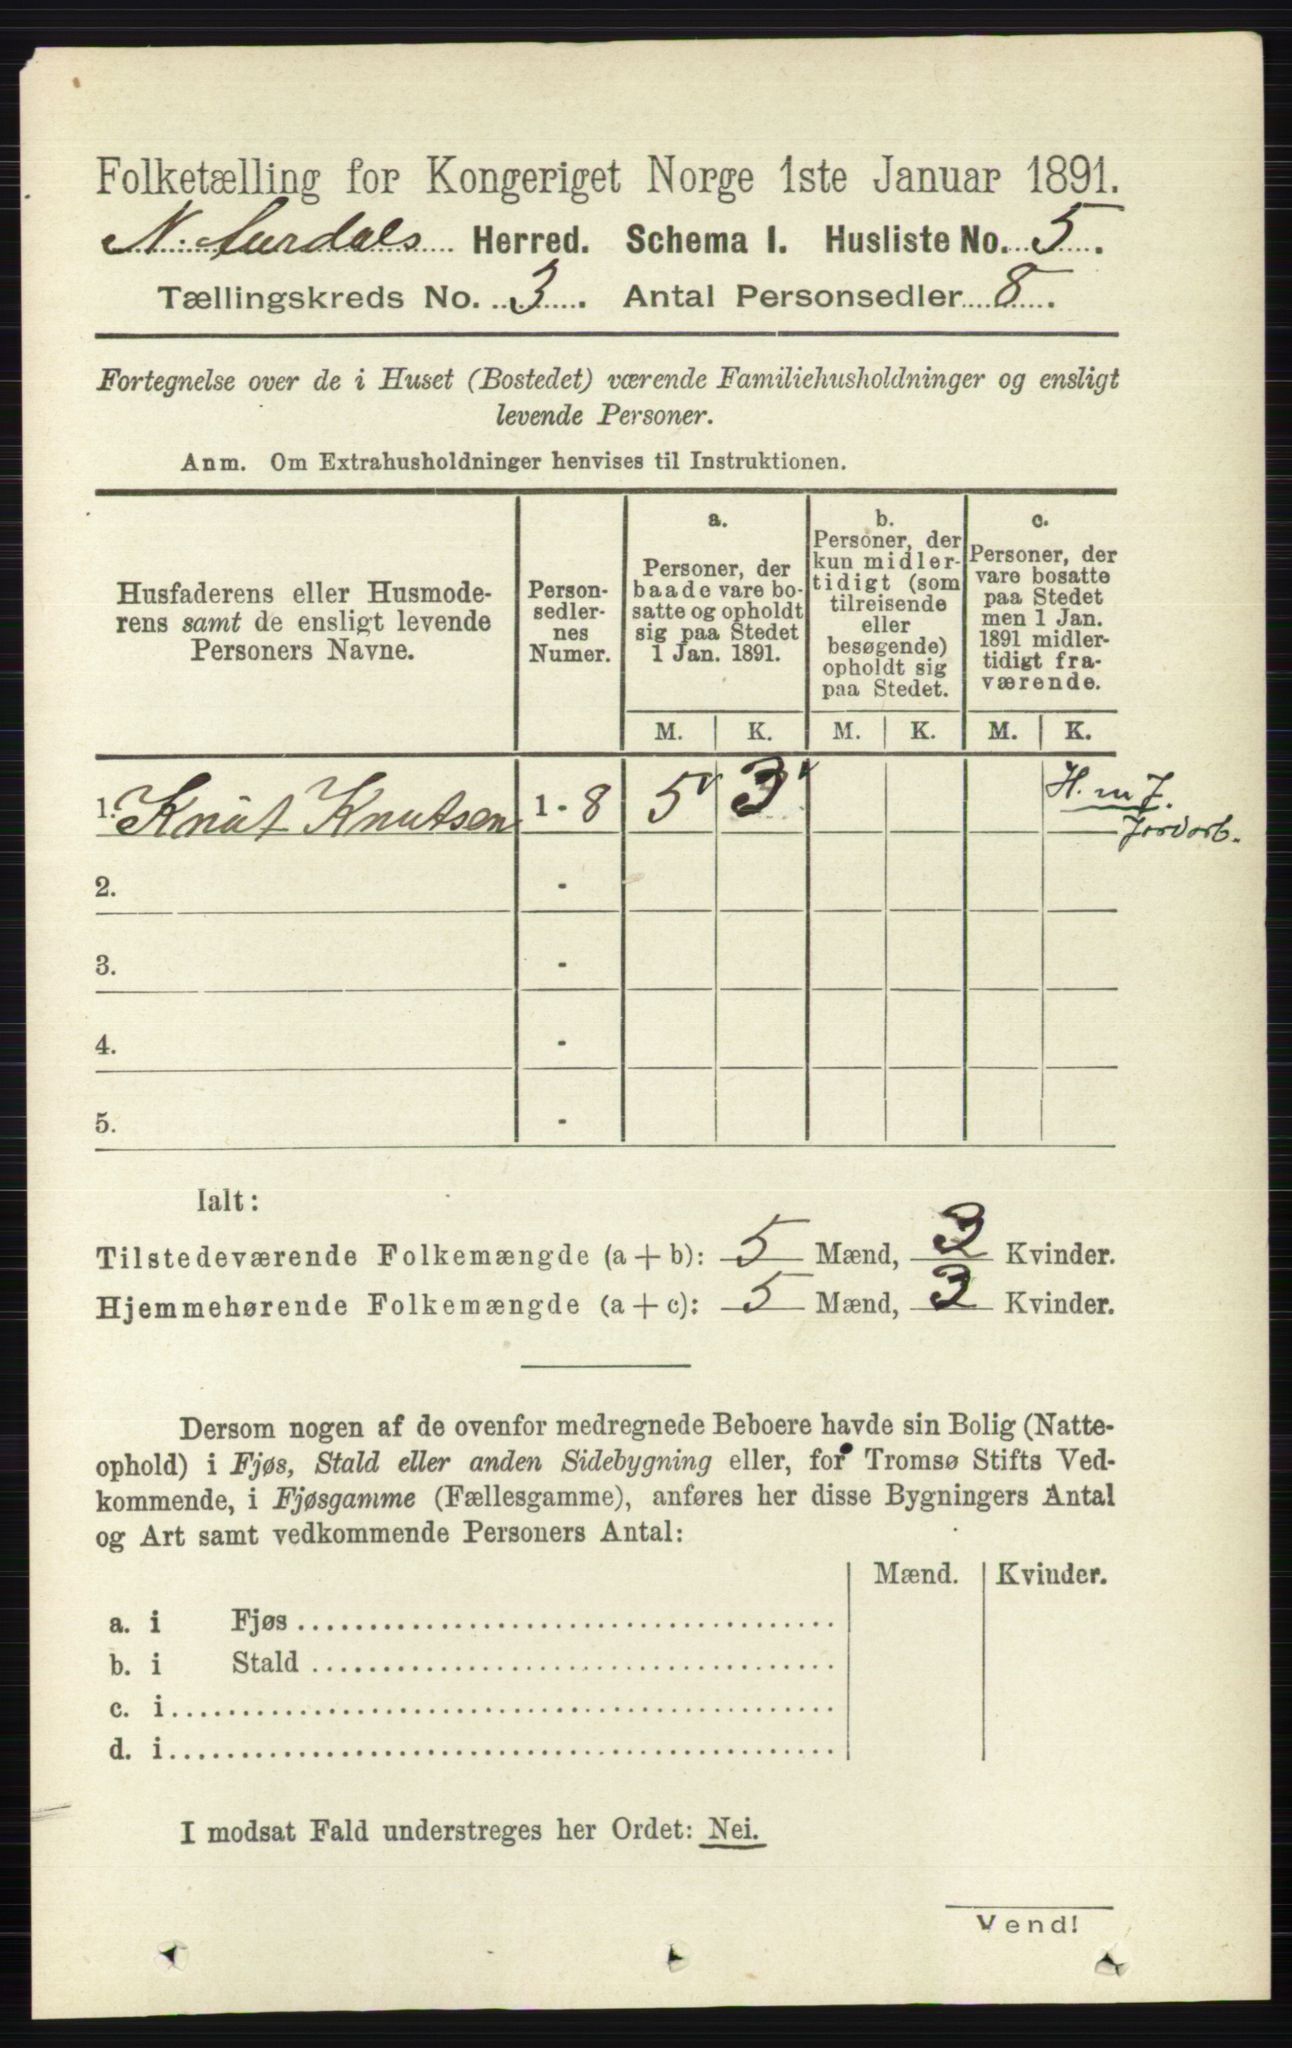 Folketælling for Kongeriget Norge 1ste Januar 1891.
N. Aurdals Herred. Schema I. Husliste No. 5.
Tællingskreds No. 3. Antal Personsedler 8.
Fortegnelse over de i Huset (Bostedet) værende Familiehusholdninger og ensligt
levende Personer.
Anm. Om Extrahusholdninger henvises til Instruktionen.
Husfaderens eller Husmode-
rens samt de ensligt levende
Personers Navne.
Person-
sedler-
nes
Numer.
a.
Personer, der
baade vare bo-
satte og opholdt
sig paa Stedet
1 Jan. 1891.
b.
Personer, der
kun midler-
tidigt (som
tilreisende
eller
besøgende)
opholdt sig
paa Stedet.
c.
Personer, der
vare bosatte
paa Stedet
men 1 Jan.
1891 midler-
tidigt fra-
værende.
M. K. M. K. M. K.
1. Knut Knutsen 1 - 8 5 3 H. m J.
Jordarb.
2. -
3. -
4. -
5. -
Ialt:
Tilstedeværende Folkemængde (a + b): 5 Mænd, 3 Kvinder.
Hjemmehørende Folkemængde (a + c): 5 Mænd, 3 Kvinder.
Dersom nogen af de ovenfor medregnede Beboere havde sin Bolig (Natte-
ophold) i Fjøs, Stald eller anden Sidebygning eller, for Tromsø Stifts Ved-
kommende, i Fjøsgamme (Fællesgamme), anføres her disse Bygningers Antal
og Art samt vedkommende Personers Antal:
Mænd. Kvinder.
a. i Fjøs
b. i Stald
c. i
d. i
I modsat Fald understreges her Ordet: Nei.
Vend!